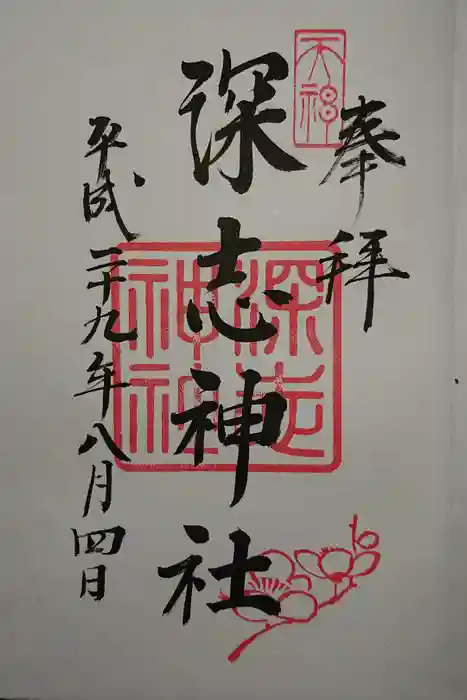 奉拝
天神
深志神社
深志神社
平成二十九年八月四日